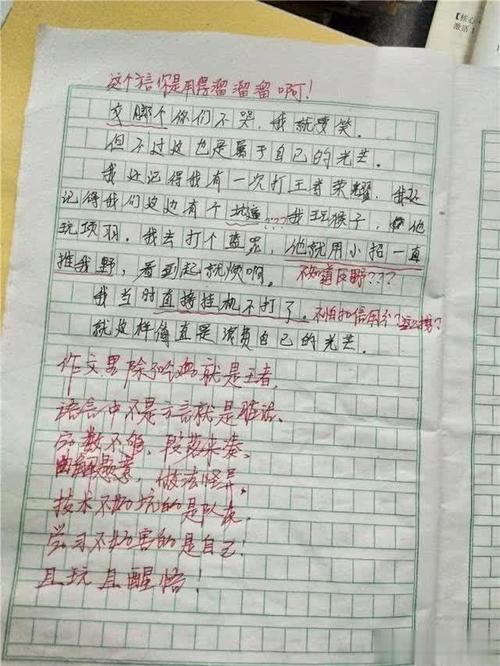 【核心
激活1
这个梗你是用得溜溜溜啊!
文哪个你们不哭,我就喷笑。
但不过这也是属于自己的光芒。
我还记得我有一次打王者荣耀,我还
记得我们这边有个坑逼...我玩猴子,他
玩项羽。我去打个蓝爸,他就用小招一直
推我野,看到起就烦啊。不知道反野???
我当时直接挂机不打了。不怕扣信用分?
就这样简直是浪费自己的光芒。
作文里除了吃鸡就是王者,
语言中不是方言就是脏话,
字数不够,段落来凑,
曲解题意,做法怪异,
技术不好坑的是队友,
学习不好害的是自己!
且玩且醒悟!